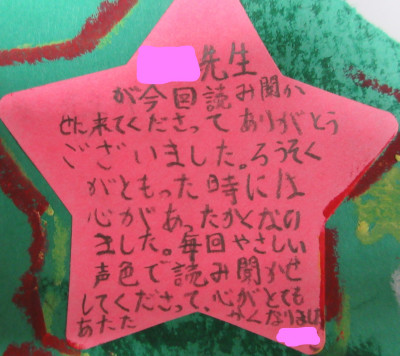 先生
が今回読み聞か
せに来てくださってありがとう
ございました。ろうそく
がともった時には
心があったかくなの
ました。毎回やさしい
声色で読み聞かせ
してくださって、心がとても
あたたかくなりました